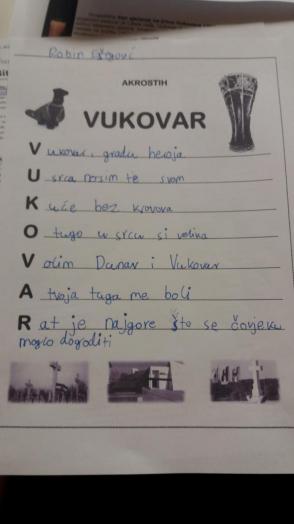 Robin
AKROSTIH
VUKOVAR
Vukovar, gradu heroja
U srca nosim te svom
Kuće bez krovova
O tugo u srcu si velika
Volim Dunav i Vukovar
A tvoja tuga me boli
Rat je najgore što se čovjeku
moglo dogoditi